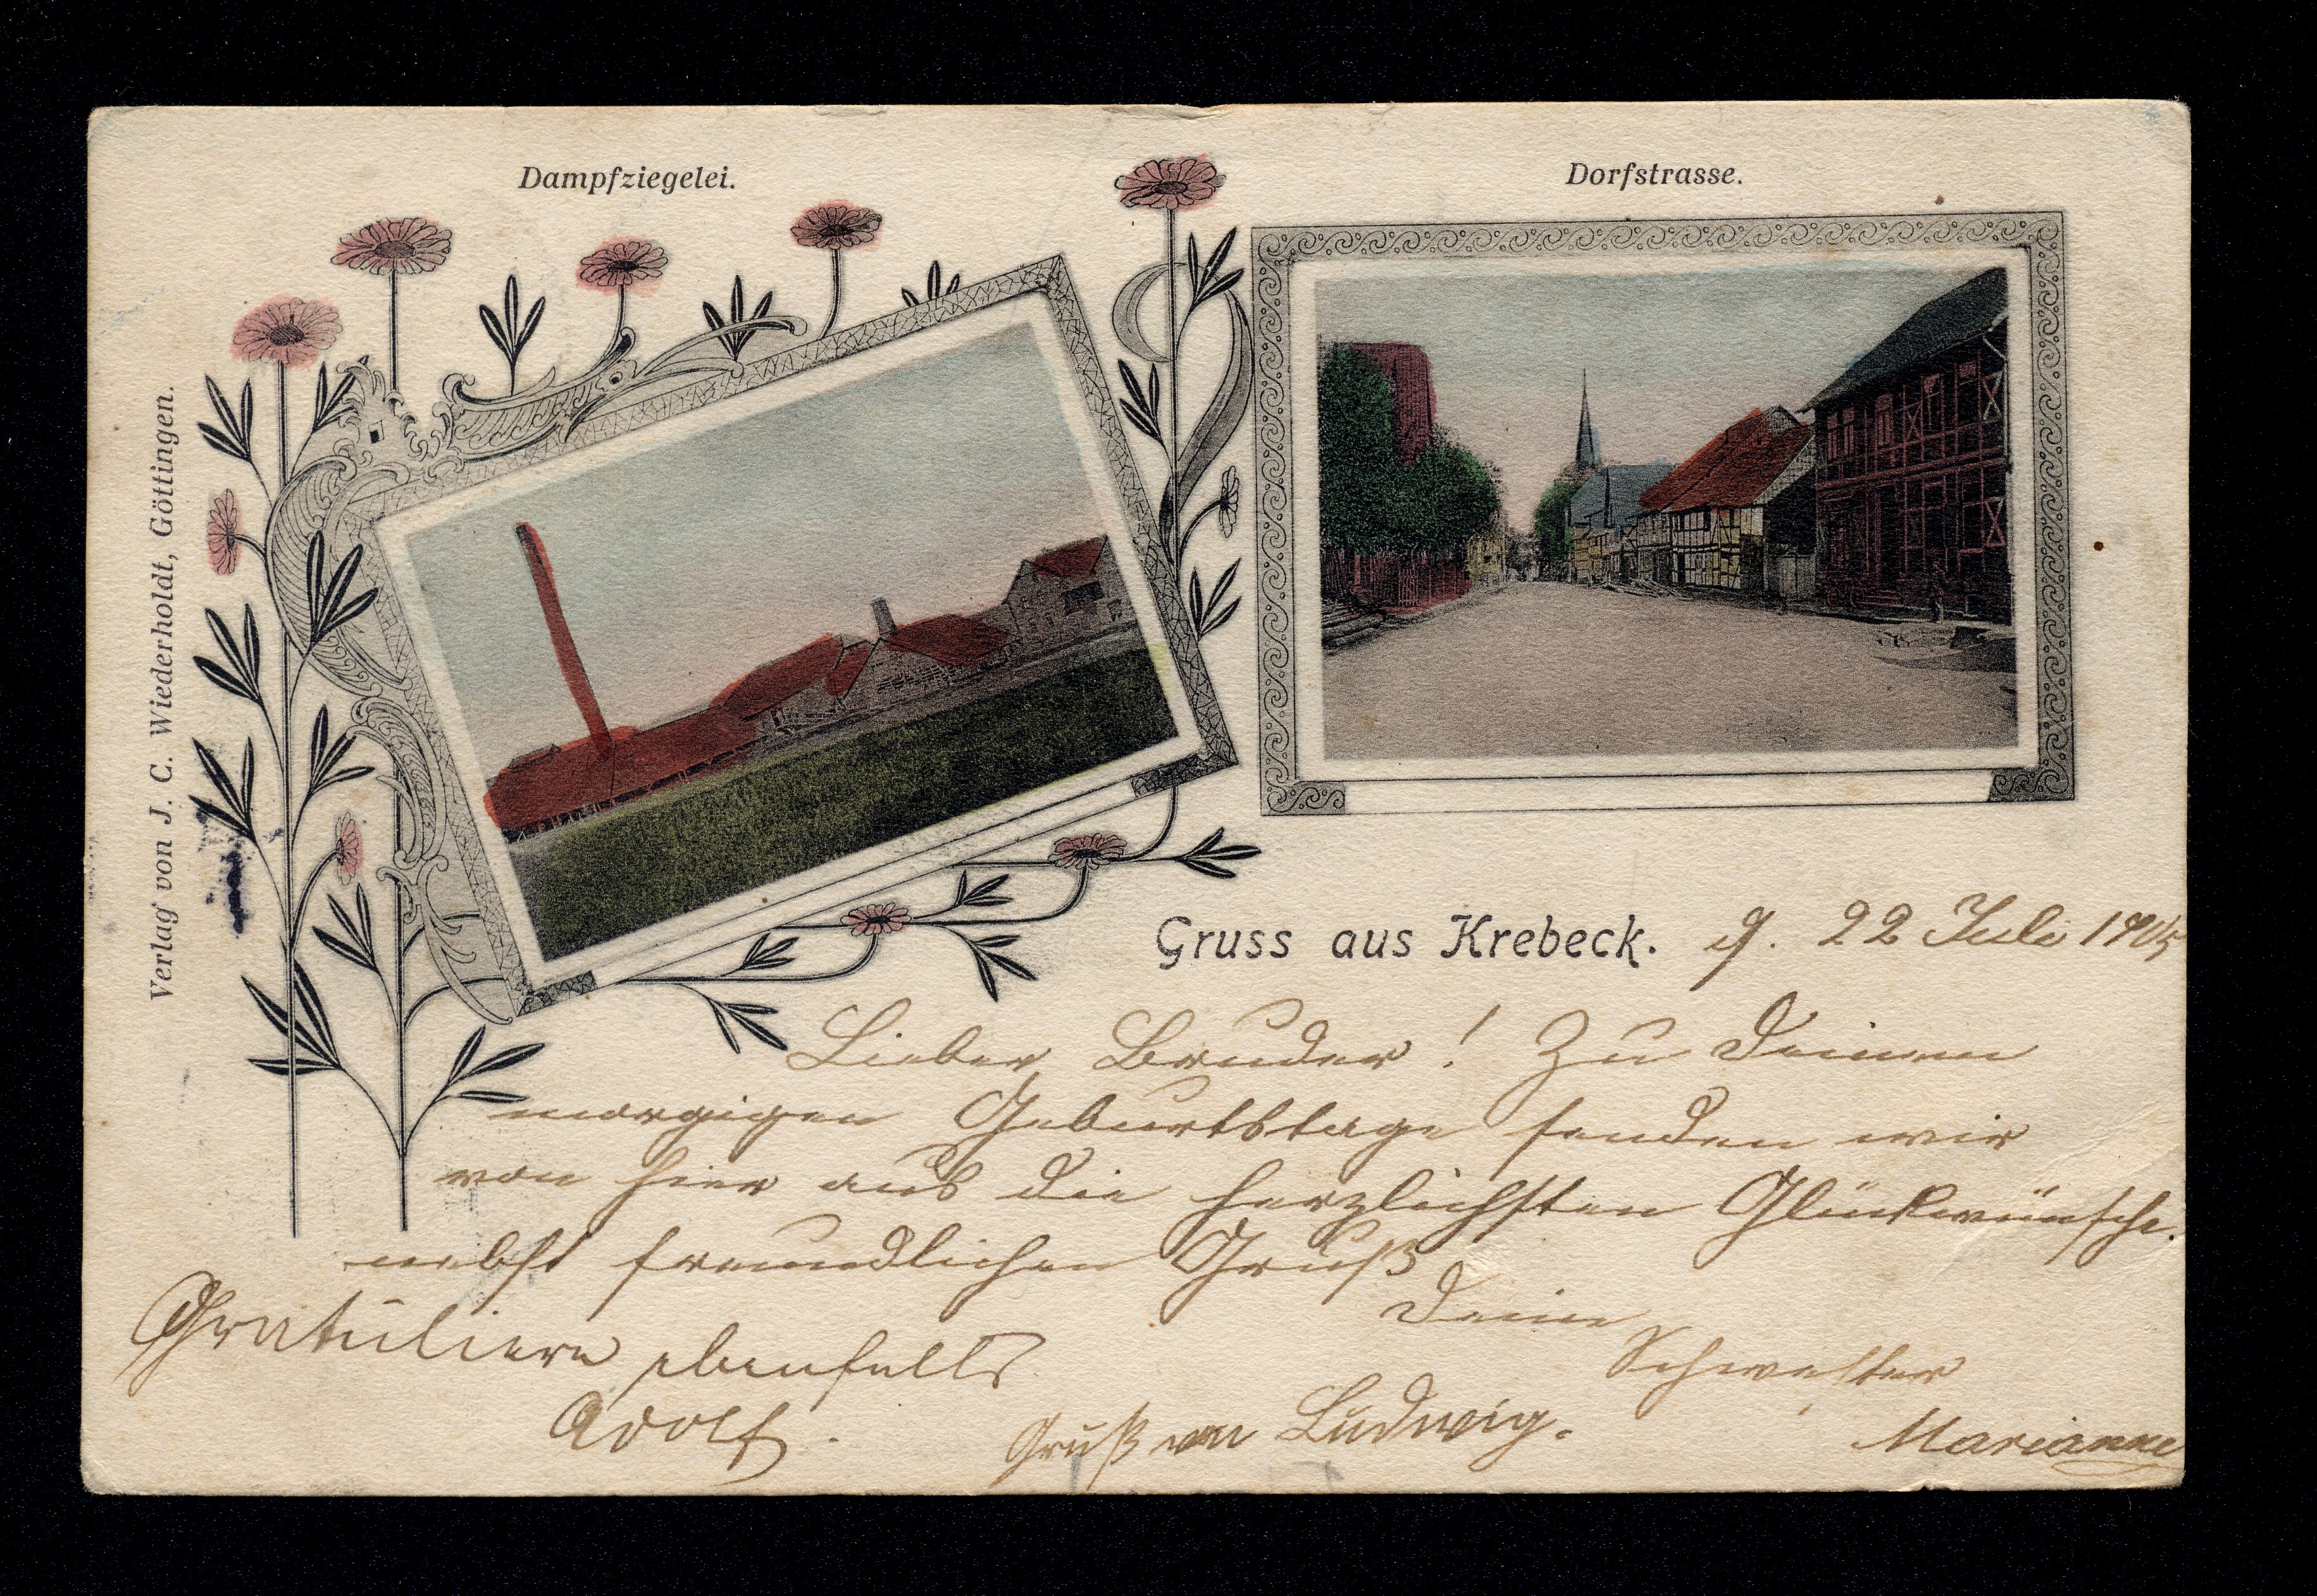 Dampfziegelei.
Dorfstrasse.
Verlag von J. C. Wiederholdt, Göttingen.
Gruss aus Krebeck. 22 Juli 1905
Lieber Bruder! Zu Deinem
morgigen Geburtstage senden wir
von hier aus die herzlichsten Glückwünsche.
nebst freundlichen Gruß
Deine
Schwester
Marianne
Gratuliere ebenfalls
Adolf.
Gruß von Ludwig.